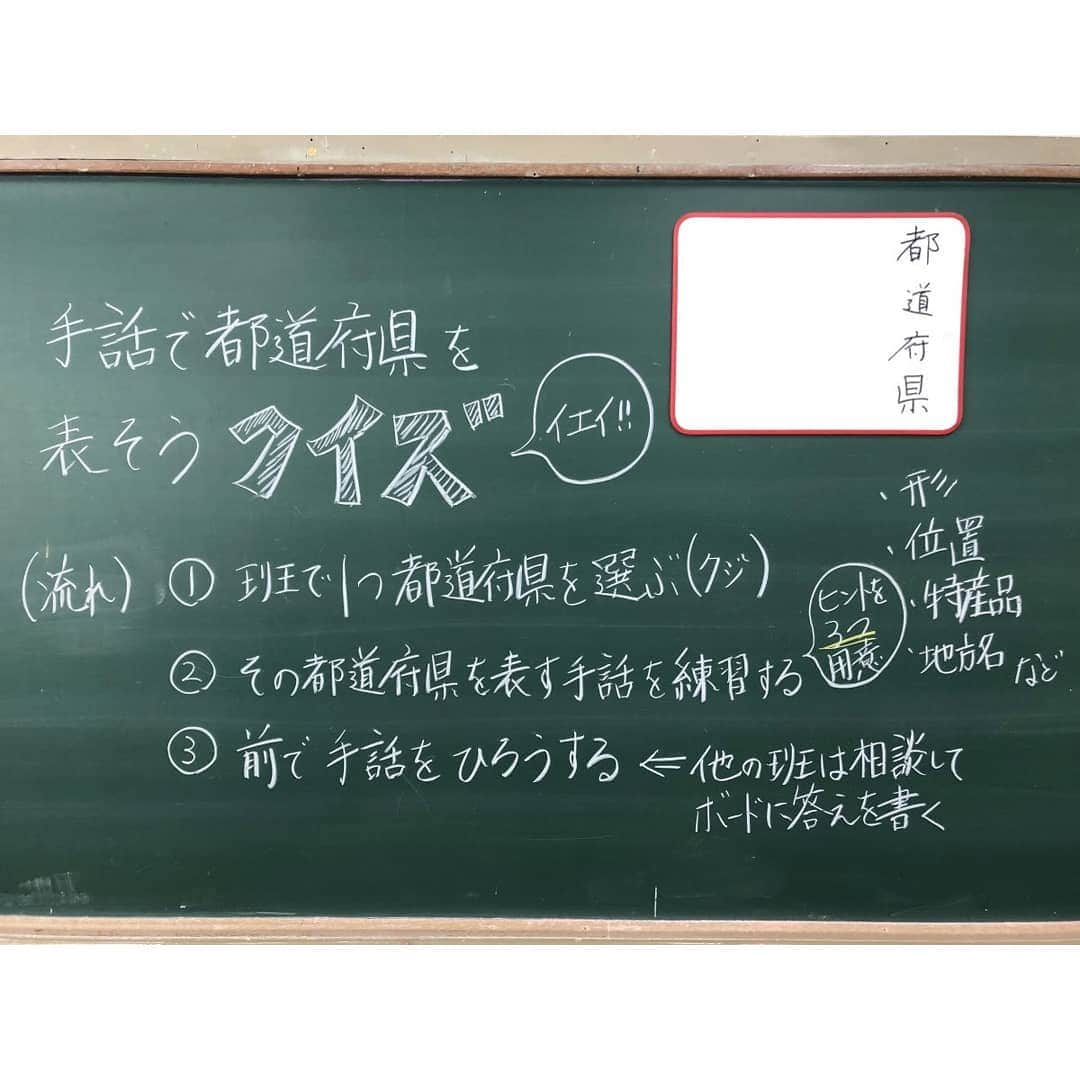 手話で都道府県を
表そうクイズ
イエイ!!
都道府県
(流れ) ① 班で1つ都道府県を選ぶ(クジ)
② その都道府県を表す手話を練習する
ヒントを
3つ
用意
・形
・位置
・特産品
・地方名 など
③ 前で手話をひろうする ← 他の班は相談して
ボードに答えを書く